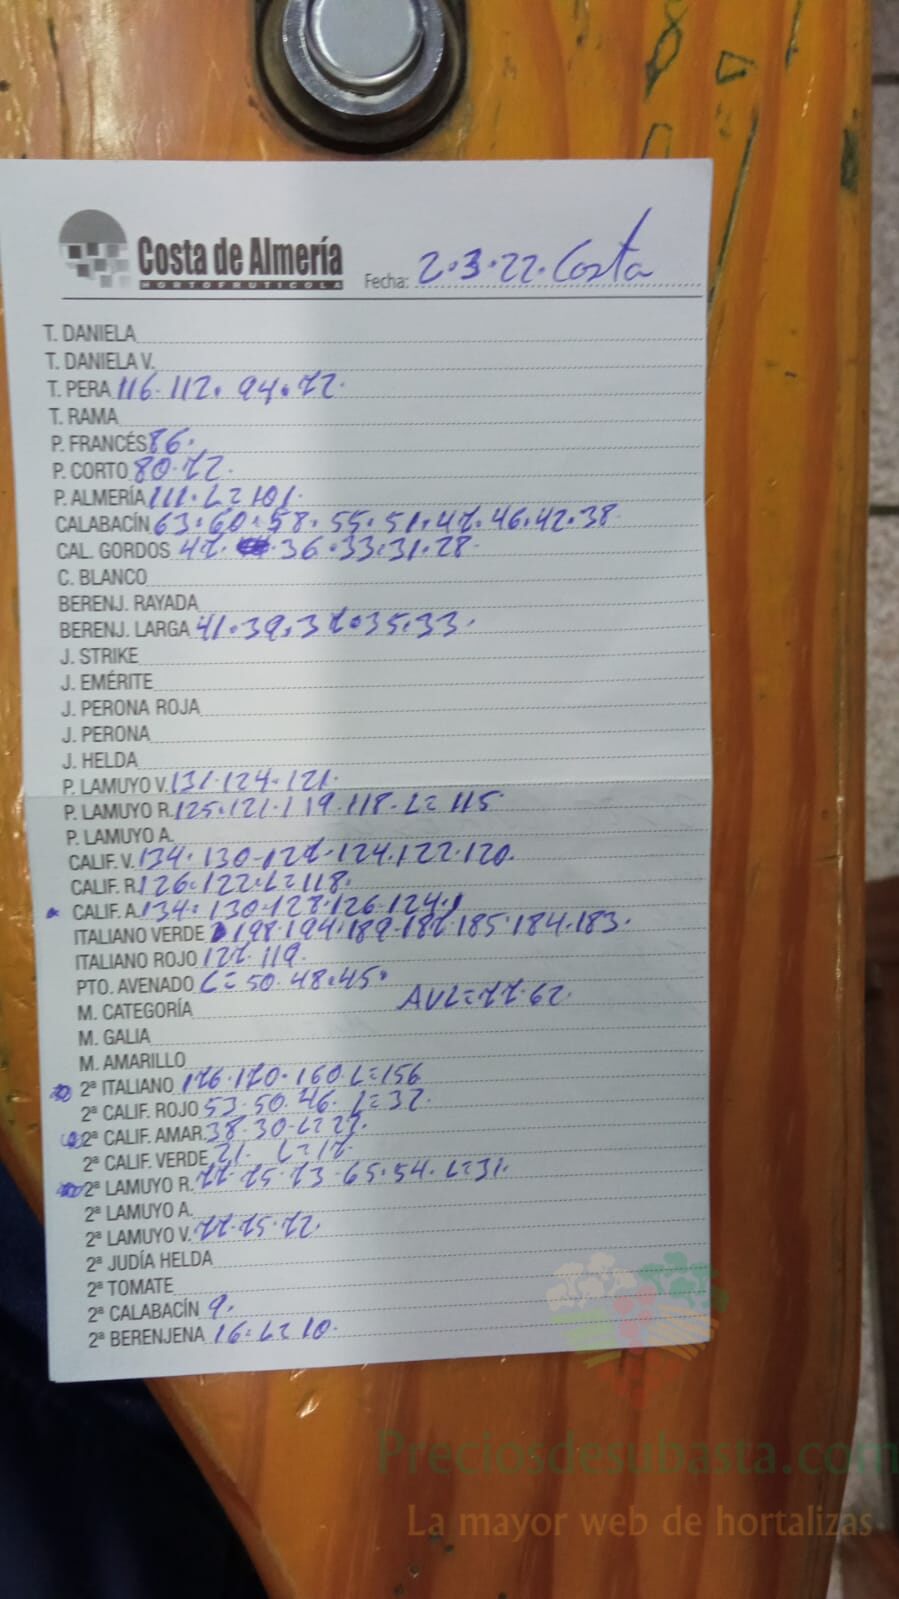 Costa de Almería
HORTOFRUTICOLA
Fecha: 2.3.22. Costa
T. DANIELA
T. DANIELA V.
T. PERA 116. 112. 94. 72.
T. RAMA
P. FRANCÉS 86.
P. CORTO 80. 72.
P. ALMERÍA 111. L= 101.
CALABACÍN 63. 60. 58. 55. 51. 47. 46. 42. 38.
CAL. GORDOS 47. 36. 33. 31. 28.
C. BLANCO
BERENJ. RAYADA
BERENJ. LARGA 41. 39. 37. 35. 33.
J. STRIKE
J. EMÉRITE
J. PERONA ROJA
J. PERONA
J. HELDA
P. LAMUYO V. 131. 124. 121.
P. LAMUYO R. 125. 121. 119. 118. L= 115
P. LAMUYO A.
CALIF. V. 134. 130. 127. 124. 122. 120.
CALIF. R. 126. 122. L= 118.
CALIF. A. 134. 130. 128. 126. 124.
ITALIANO VERDE 198. 194. 189. 187. 185. 184. 183.
ITALIANO ROJO 127. 119.
PTO. AVENADO L= 50. 48. 45.
AVL= 77. 62.
M. CATEGORÍA
M. GALIA
M. AMARILLO
2ª ITALIANO 176. 170. 160 L= 156
2ª CALIF. ROJO 53. 50. 46. L= 32.
2ª CALIF. AMAR. 38. 30. L= 27.
2ª CALIF. VERDE 21. L= 17.
2ª LAMUYO R. 77. 75. 73. 65. 54. L= 31.
2ª LAMUYO A.
2ª LAMUYO V. 77. 75. 72.
2ª JUDÍA HELDA
2ª TOMATE
2ª CALABACÍN 9.
2ª BERENJENA 16. L= 10.
Preciosdesubasta.com
La mayor web de hortalizas